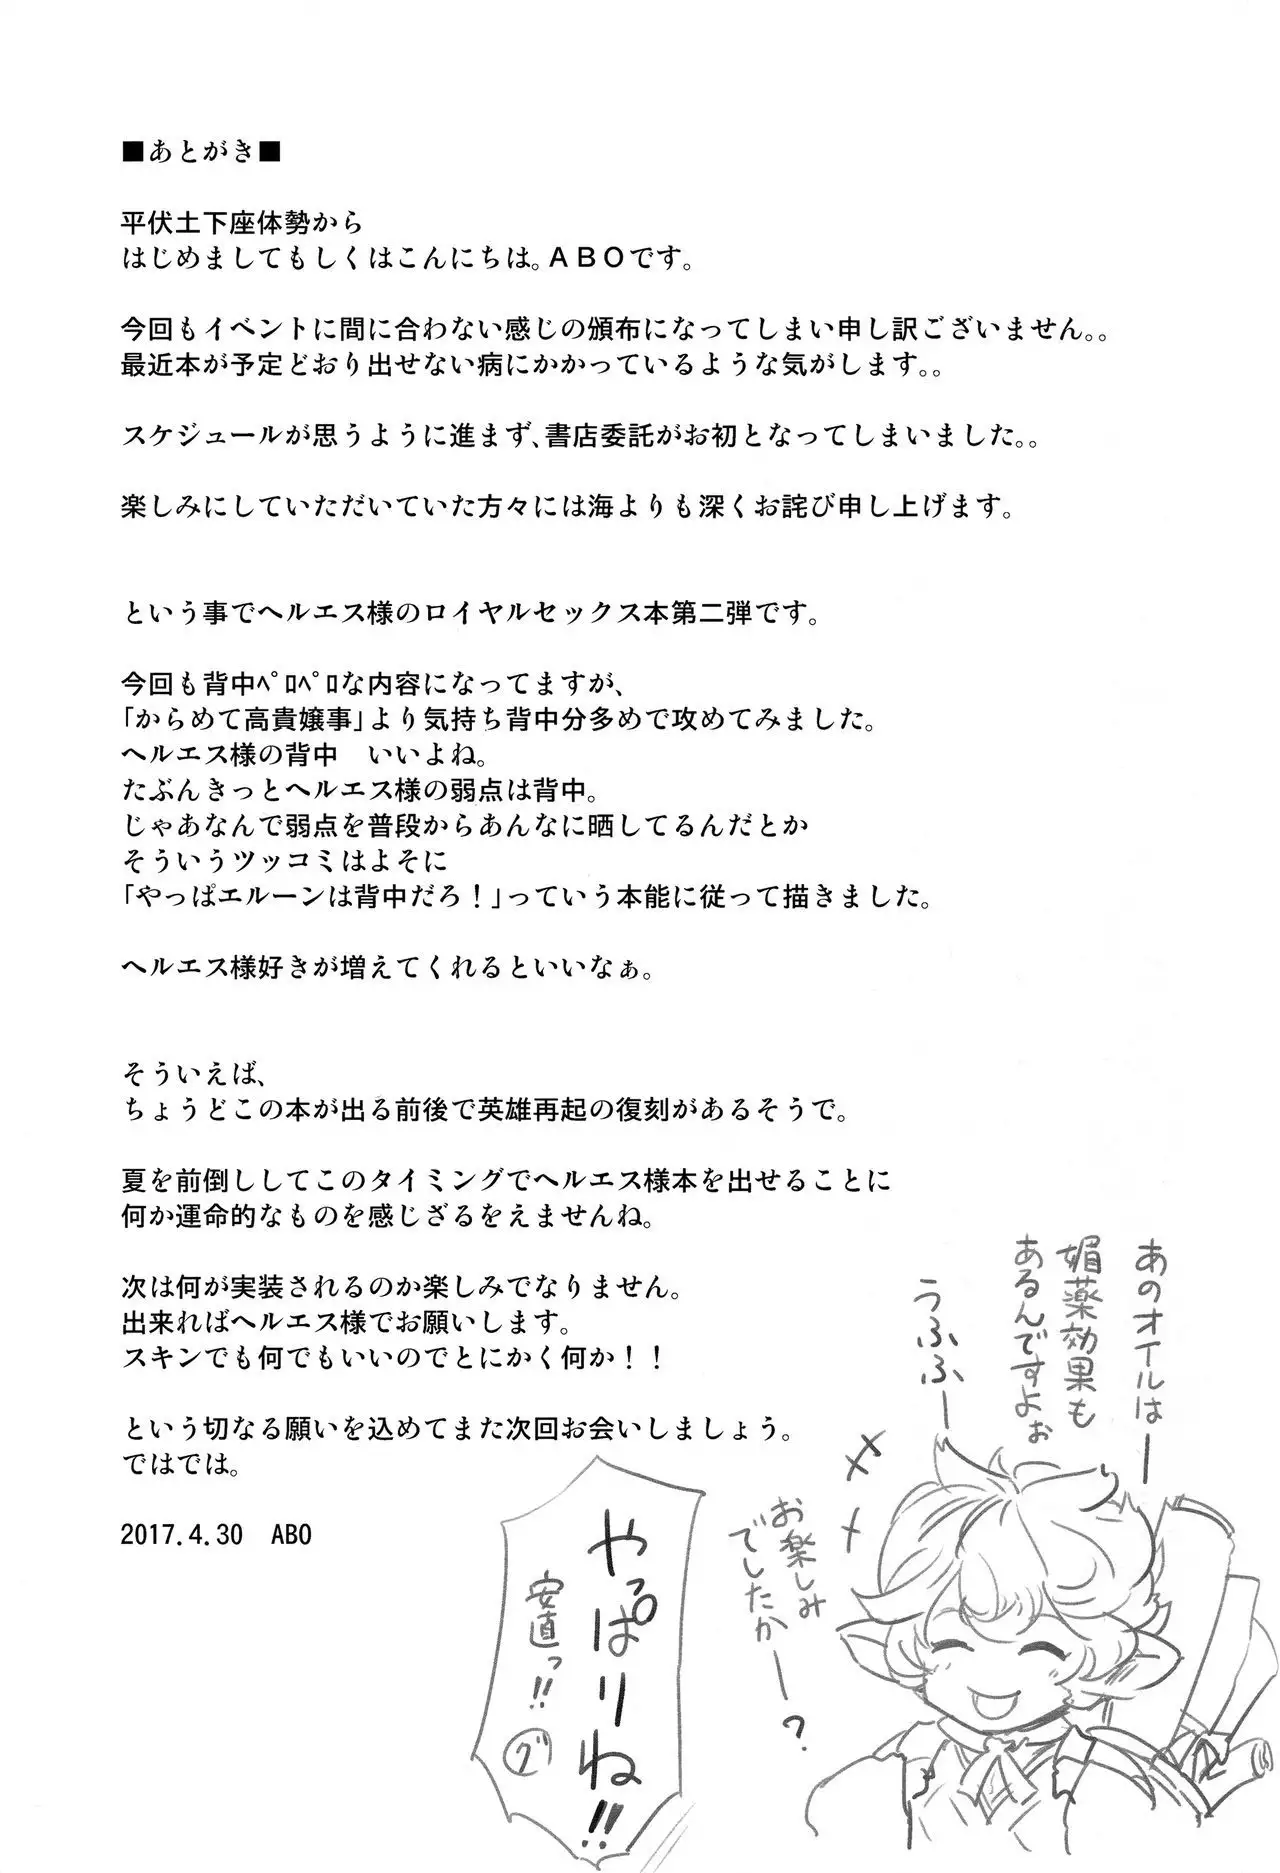 ■あとがき■
平伏土下座体勢から
はじめましてもしくはこんにちは。ABOです。
今回もイベントに間に合わない感じの頒布になってしまい申し訳ございません。。
最近本が予定どおり出せない病にかかっているような気がします。。
スケジュールが思うように進まず、書店委託がお初となってしまいました。。
楽しみにしていただいていた方々には海よりも深くお詫び申し上げます。
という事でヘルエス様のロイヤルセックス本第二弾です。
今回も背中ﾍﾟﾛﾍﾟﾛな内容になってますが、
「からめて高貴嬢事」より気持ち背中分多めで攻めてみました。
ヘルエス様の背中　いいよね。
たぶんきっとヘルエス様の弱点は背中。
じゃあなんで弱点を普段からあんなに晒してるんだとか
そういうツッコミはよそに
「やっぱエルーンは背中だろ！」っていう本能に従って描きました。
ヘルエス様好きが増えてくれるといいなぁ。
そういえば、
ちょうどこの本が出る前後で英雄再起の復刻があるそうで。
夏を前倒ししてこのタイミングでヘルエス様本を出せることに
何か運命的なものを感じざるをえませんね。
次は何が実装されるのか楽しみでなりません。
出来ればヘルエス様でお願いします。
スキンでも何でもいいのでとにかく何か！！
という切なる願いを込めてまた次回お会いしましょう。
ではでは。
2017.4.30　ABO
あのオイルはー
媚薬効果も
あるんですよぉ
うふふー
お楽しみ
でしたかー？
やっぱりね!!
安直っ!!
グッ